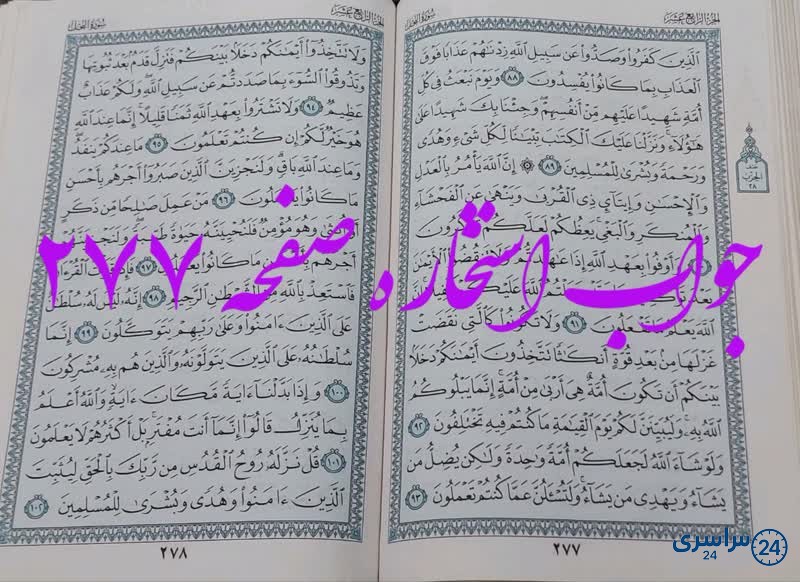 الجزء الرابع عشر
سورة النحل
ٱلَّذِينَ كَفَرُوا۟ وَصَدُّوا۟ عَن سَبِيلِ ٱللَّهِ زِدْنَٰهُمْ عَذَابًا فَوْقَ
ٱلْعَذَابِ بِمَا كَانُوا۟ يُفْسِدُونَ ٨٨ وَيَوْمَ نَبْعَثُ فِى كُلِّ
أُمَّةٍ شَهِيدًا عَلَيْهِم مِّنْ أَنفُسِهِمْ وَجِئْنَا بِكَ شَهِيدًا عَلَىٰ
هَٰٓؤُلَآءِ وَنَزَّلْنَا عَلَيْكَ ٱلْكِتَٰبَ تِبْيَٰنًا لِّكُلِّ شَىْءٍ وَهُدًى
وَرَحْمَةً وَبُشْرَىٰ لِلْمُسْلِمِينَ ٨٩ ۞ إِنَّ ٱللَّهَ يَأْمُرُ بِٱلْعَدْلِ
وَٱلْإِحْسَٰنِ وَإِيتَآئِ ذِى ٱلْقُرْبَىٰ وَيَنْهَىٰ عَنِ ٱلْفَحْشَآءِ
وَٱلْمُنكَرِ وَٱلْبَغْىِ يَعِظُكُمْ لَعَلَّكُمْ تَذَكَّرُونَ
وَأَوْفُوا۟ بِعَهْدِ ٱللَّهِ إِذَا عَٰهَدتُّمْ وَلَا تَنقُضُوا۟ ٱلْأَيْمَٰنَ
بَعْدَ تَوْكِيدِهَا وَقَدْ جَعَلْتُمُ ٱللَّهَ عَلَيْكُمْ كَفِيلًا إِنَّ
ٱللَّهَ يَعْلَمُ مَا تَفْعَلُونَ ٩١ وَلَا تَكُونُوا۟ كَٱلَّتِى نَقَضَتْ
غَزْلَهَا مِنۢ بَعْدِ قُوَّةٍ أَنكَٰثًا تَتَّخِذُونَ أَيْمَٰنَكُمْ دَخَلًۢا
بَيْنَكُمْ أَن تَكُونَ أُمَّةٌ هِىَ أَرْبَىٰ مِنْ أُمَّةٍ إِنَّمَا يَبْلُوكُمُ
ٱللَّهُ بِهِۦ وَلَيُبَيِّنَنَّ لَكُمْ يَوْمَ ٱلْقِيَٰمَةِ مَا كُنتُمْ فِيهِ تَخْتَلِفُونَ ٩٢
وَلَوْ شَآءَ ٱللَّهُ لَجَعَلَكُمْ أُمَّةً وَٰحِدَةً وَلَٰكِن يُضِلُّ مَن
يَشَآءُ وَيَهْدِى مَن يَشَآءُ وَلَتُسْـَٔلُنَّ عَمَّا كُنتُمْ تَعْمَلُونَ ٩٣
٢٧٧
الحزب
٢٨
الجزء الرابع عشر
سورة النحل
وَلَا تَتَّخِذُوٓا۟ أَيْمَٰنَكُمْ دَخَلًۢا بَيْنَكُمْ فَتَزِلَّ قَدَمٌۢ بَعْدَ ثُبُوتِهَا
وَتَذُوقُوا۟ ٱلسُّوٓءَ بِمَا صَدَدتُّمْ عَن سَبِيلِ ٱللَّهِ وَلَكُمْ عَذَابٌ
عَظِيمٌ ٩٤ وَلَا تَشْتَرُوا۟ بِعَهْدِ ٱللَّهِ ثَمَنًا قَلِيلًا إِنَّمَا عِندَ ٱللَّهِ
هُوَ خَيْرٌ لَّكُمْ إِن كُنتُمْ تَعْلَمُونَ ٩٥ مَا عِندَكُمْ يَنفَدُ
وَمَا عِندَ ٱللَّهِ بَاقٍ وَلَنَجْزِيَنَّ ٱلَّذِينَ صَبَرُوٓا۟ أَجْرَهُم بِأَحْسَنِ
مَا كَانُوا۟ يَعْمَلُونَ ٩٦ مَنْ عَمِلَ صَٰلِحًا مِّن ذَكَرٍ
أَوْ أُنثَىٰ وَهُوَ مُؤْمِنٌ فَلَنُحْيِيَنَّهُۥ حَيَوٰةً طَيِّبَةً وَلَنَجْزِيَنَّهُمْ
أَجْرَهُم بِأَحْسَنِ مَا كَانُوا۟ يَعْمَلُونَ ٩٧ فَإِذَا قَرَأْتَ ٱلْقُرْءَانَ
فَٱسْتَعِذْ بِٱللَّهِ مِنَ ٱلشَّيْطَٰنِ ٱلرَّجِيمِ ٩٨ إِنَّهُۥ لَيْسَ لَهُۥ سُلْطَٰنٌ
عَلَى ٱلَّذِينَ ءَامَنُوا۟ وَعَلَىٰ رَبِّهِمْ يَتَوَكَّلُونَ ٩٩ إِنَّمَا
سُلْطَٰنُهُۥ عَلَى ٱلَّذِينَ يَتَوَلَّوْنَهُۥ وَٱلَّذِينَ هُم بِهِۦ مُشْرِكُونَ
١٠٠ وَإِذَا بَدَّلْنَآ ءَايَةً مَّكَانَ ءَايَةٍ وَٱللَّهُ أَعْلَمُ
بِمَا يُنَزِّلُ قَالُوٓا۟ إِنَّمَآ أَنتَ مُفْتَرٍۭ بَلْ أَكْثَرُهُمْ لَا يَعْلَمُونَ
١٠١ قُلْ نَزَّلَهُۥ رُوحُ ٱلْقُدُسِ مِن رَّبِّكَ بِٱلْحَقِّ لِيُثَبِّتَ
ٱلَّذِينَ ءَامَنُوا۟ وَهُدًى وَبُشْرَىٰ لِلْمُسْلِمِينَ ١٠٢
٢٧٨
جواب استخاره صفحه ۲۷۷
سراسری
24
24